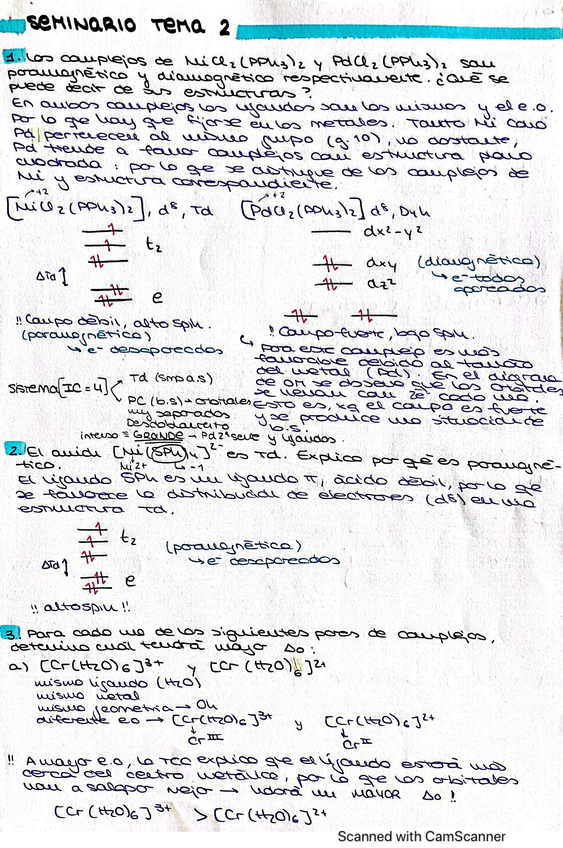 SEMINARIO TEMA 2
1. Los complejos de NiCl₂(PPh₃)₂ y PdCl₂(PPh₃)₂ son
paramagnético y diamagnético respectivamente. ¿Qué se
puede decir de sus estructuras?
En ambos complejos los ligandos son los mismos y el e.o.
Por lo que hay que fijarse en los metales. Tanto Ni como
Pd pertenecen al mismo grupo (g.10), no obstante,
Pd tiende a formar complejos con estructura plano
cuadrada: por lo que se distingue de los complejos de
Ni y estructura correspondiente.
+2 +2
[NiCl₂(PPh₃)₂], d⁸, Td [PdCl₂(PPh₃)₂] d⁸, D4h
dx²-y²
t₂
dxy (diamagnético)
ΔTd
↳ e⁻ todos
dz²
apareados
e
!! Campo débil, alto spin. ! Campo fuerte, bajo spin.
(paramagnético)
↳ e⁻ desapareados
↳ para este complejo es más
favorable debido al tamaño
del metal (Pd). En el diagrama
de OM se observa que los orbitales
se llenan con 2e⁻ cada uno.
Esto es, xq el campo es fuerte
y se produce una situación de
b.s.
Sistema [IC=4] Td (smp a.s)
PC (b.s) → orbitales
muy separados
Desdoblamiento
intenso = GRANDE → Pd²⁺ siete y ligandos.
2. El anión [Ni(SPh)₄]²⁻ es Td. Explica por qué es paramagné-
tico.
Ni²⁺ ↳ -1
El ligando SPh es un ligando π, ácido débil, por lo que
se favorece la distribución de electrones (d⁸) en una
estructura Td.
t₂ (paramagnético)
ΔTd ↳ e⁻ desapareados
e
!! alto spin !!
3. Para cada uno de los siguientes pares de complejos,
determina cuál tendrá mayor Δo:
a) [Cr(H₂O)₆]³⁺ y [Cr(H₂O)₆]²⁺
mismo ligando (H₂O)
mismo metal
misma geometría → Oh
diferente e.o → [Cr(H₂O)₆]³⁺ y [Cr(H₂O)₆]²⁺
Cr III Cr II
!! A mayor e.o, la TCC explica que el ligando estará más
cerca del centro metálico, por lo que los orbitales
van a solapar mejor → habrá un MAYOR Δo !
[Cr(H₂O)₆]³⁺ > [Cr(H₂O)₆]²⁺
Scanned with CamScanner